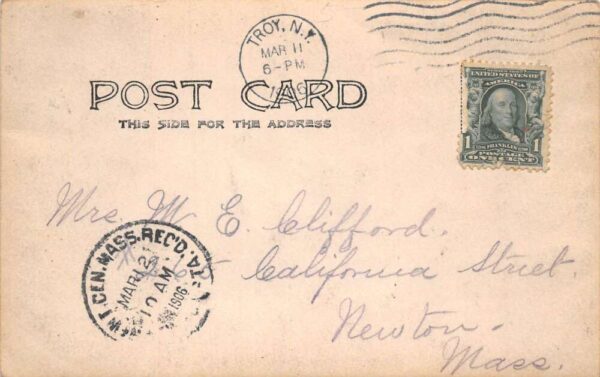 TROY, N.Y.
MAR 11
6-PM
1906
POST CARD
THIS SIDE FOR THE ADDRESS
UNITED STATES OF
AMERICA
1 FRANKLIN 1
POSTAGE
ONE CENT
Mrs. M. E. Clifford.
California Street.
Newton.
Mass.
CEN. MASS. REC'D.
MAR 12
10 AM
1906